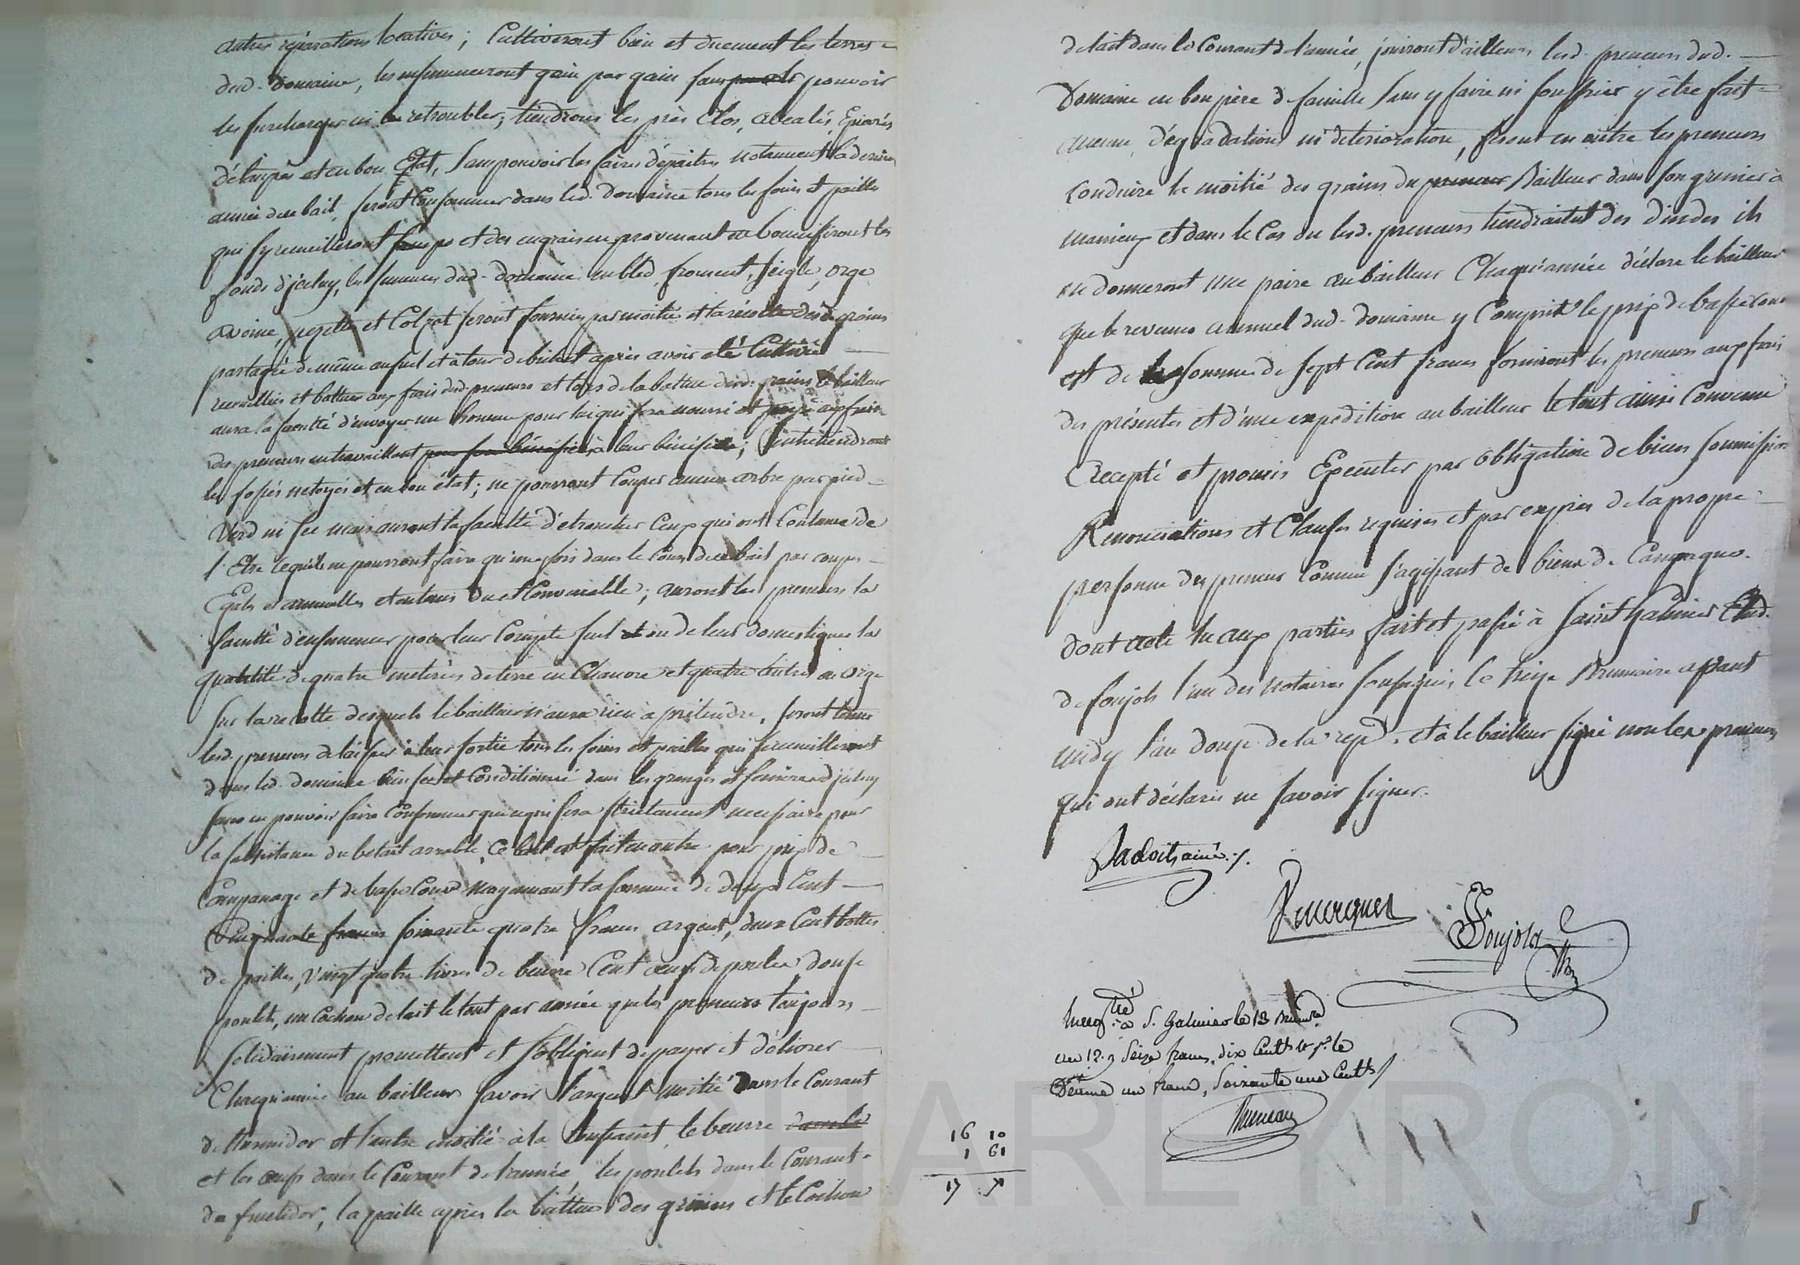 autres réparations locatives ; Cultiveront bien et duement les terres
dud. Domaine, les ensemenceront gain par gain sans pouvoir
les surcharger ni retroubler ; tiendront les près Clos,
et en bon Etat, Sans pouvoir les faire dépaitre notamment la derniere
année du bail, feront Consommer dans led. Domaine tous les foins et pailles
qui s'y recueilleront et des engrais en provenant en bonnifieront les
fonds d'jceluy, les semences dud. domaine en bled, froment, seigle, orge
avoine, et Colzat seront fournies par moitié et la récolte desd. grains
partagée de même au suel et à tour de bichet après avoir été Cultivés
recueillis et battus aux frais desd. preneurs et lors de la batture desd. grains le bailleur
aura la faculté d'envoyer un homme pour lui qui sera nourri et payé aux frais
des preneurs en travaillant pour son bénéfice à leur bénéfice ; Entretiendront
les fossés netoyés et en bon état ; ne pourront Couper aucun arbre par pied
Verd ni sec mais auront la faculté d'etroncher Ceux qui ont Coutume de
l'Etre lequels ne pourront faire qu'une fois dans le Cours de ce bail par coupes
Egales et annuelles et en tems Du et Convenable ; auront les preneurs la
faculté d'ensemencer pour leur Compte seul et ou de leurs domestiques la
quantité de quatre meterées de terre en Chanvre et quatre autres en orge
Sur la recolte desquels le bailleur n'aura rien a prétendre, seront tenus
lesd. preneurs de laisser à leur sortie tous les foins et pailles qui se recueilleront
dans led. domaine bien sec et Conditionné dans les granges et fenieres d'jceluy
sans en pouvoir faire Consommer que ce qui sera strictement necessaire pour
la subsistance du betail arrable, Ce bail est fait en outre pour prix de
Companage et de basse Cour moyennant la somme de deux Cent
Cinquante francs soixante quatre francs argent, deux Cent bottes
de paille, Vingt quatre livres de beurre Cent oeufs de poules douze
poulets, un Cochon de lait le tout par année que les preneurs toujours
solidairement promettent et s'obligent de payer et délivrer
Chaqu'année au bailleur savoir l'argent moitié Dans le Courant
de thermidor et l'autre moitié à la toussaint, le beurre dans le
et les oeufs dans le Courant de l'année, les poulets dans le Courant
de fructidor, la paille après la batture des grains et le Cochon
de lait dans le Courant de l'année, jouiront d'ailleurs lesd. preneurs dud.
Domaine en bon père de famille Sans y faire ni souffrir y être fait
aucune dégradations ni détérioration, seront en outre les preneurs
Conduire la moitié des grains du preneur Bailleur dans son grenier à
et dans le Cas où lesd. preneurs tiendraient des dindes ils
en donneront une paire au bailleur Chaqu'année déclare le bailleur
que le revenu annuel dud. domaine y Compris le prix de basse Cour
est de la somme de sept Cent francs forniront les preneurs aux frais
des présentes et d'une expedition au bailleur le tout ainsi Convenu
accepté et promis Executer par obligation de biens soumissions
Renonciations et Clauses requises et par exprès de la propre
personne des preneurs Comme s'agissant de biens de Campagne.
dont acte lu aux parties fait et passé à Saint Galmier Etude
de foujols l'un des Notaires soussignés, le treize Brumaire avant
midy l'an douze de la rep.e et a le bailleur signé non les preneurs
qui ont déclaré ne savoir signer.
Foujols
Enreg.tré à S. Galmier le 13 Brum.re
an 12. Seize francs, dix Cent.s
Décime un franc, soixante une Cent.s
16 10
1 61
17 71
CHARLEYRON